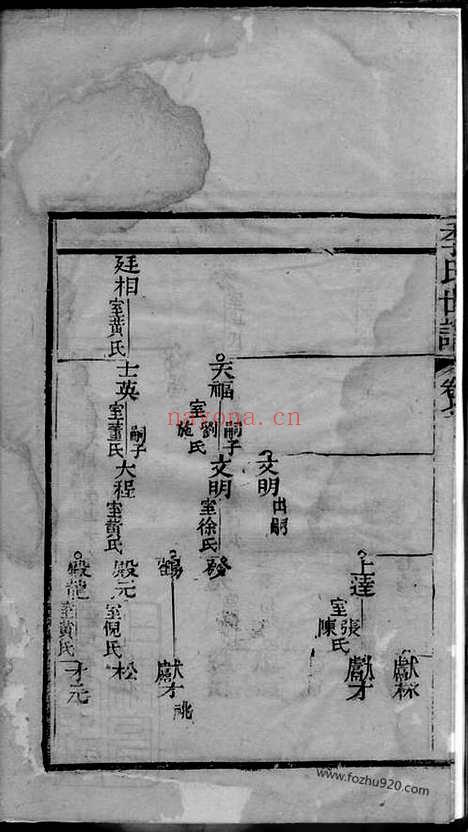 李氏世譜
獻林
上達
室張氏
陳
獻才
文明
出嗣
天福
室劉氏
施
嗣子
文明
室徐氏
發
鶴
獻才
祧
廷相
室黃氏
士英
室董氏
嗣子
大程
室黃氏
殿元
室倪氏
松
殿龍
室黃氏
才元
nayona.cn
www.fozhu920.com